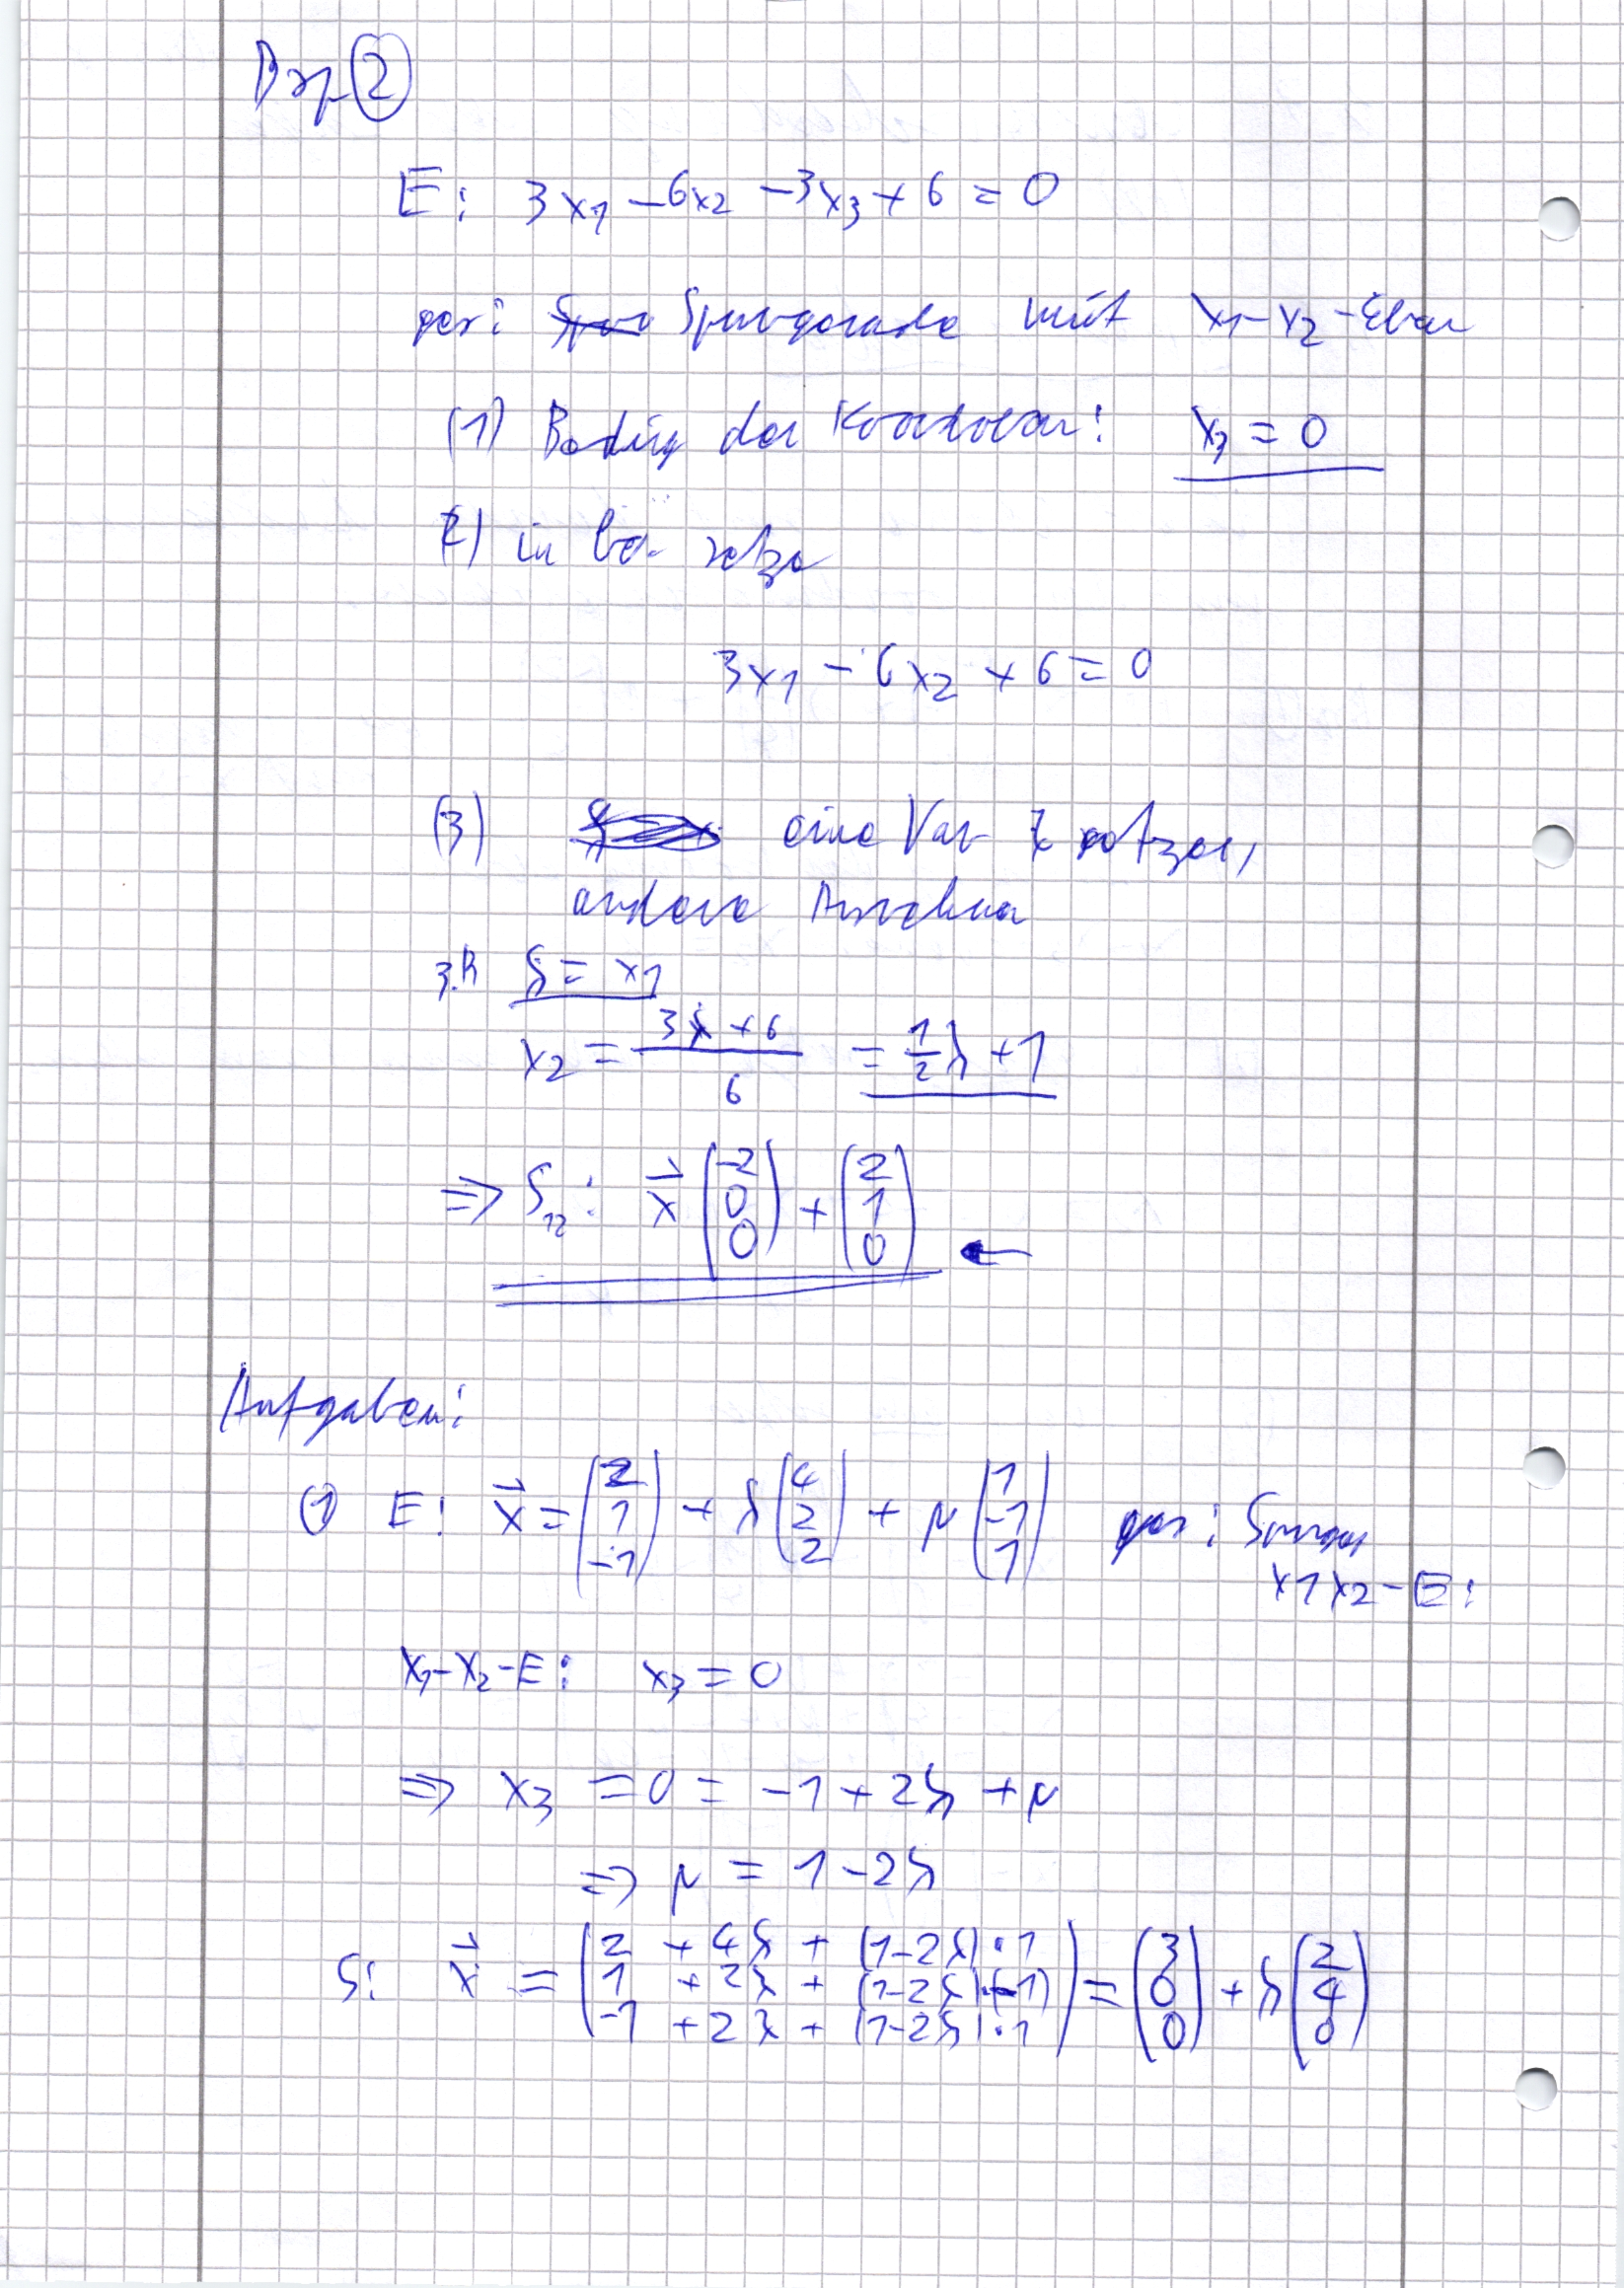 Bsp ②
E: 3x1 - 6x2 - 3x3 + 6 = 0
ges: Spurgerade mit x1-x2-Eben
(1) Beding der Koordeben: x3 = 0
(2) in setze
3x1 - 6x2 + 6 = 0
(3) eine Var λ setzen,
andere Ausrechnen
z.B λ = x1
x2 = (3λ + 6)/6 = 1/2 λ + 1
=> S12: x⃗ (-2 0 0) + (2 1 0) ←
Aufgaben:
① E: x⃗ = (2 1 -1) + λ (4 2 2) + μ (1 -1 1) ges: Spurger
x1x2-E:
x1-x2-E: x3 = 0
=> x3 = 0 = -1 + 2λ + μ
=> μ = 1 - 2λ
S: x⃗ = (2 + 4λ + (1-2λ)·1 1 + 2λ + (1-2λ)·(-1) -1 + 2λ + (1-2λ)·1) = (3 0 0) + λ (2 4 0)